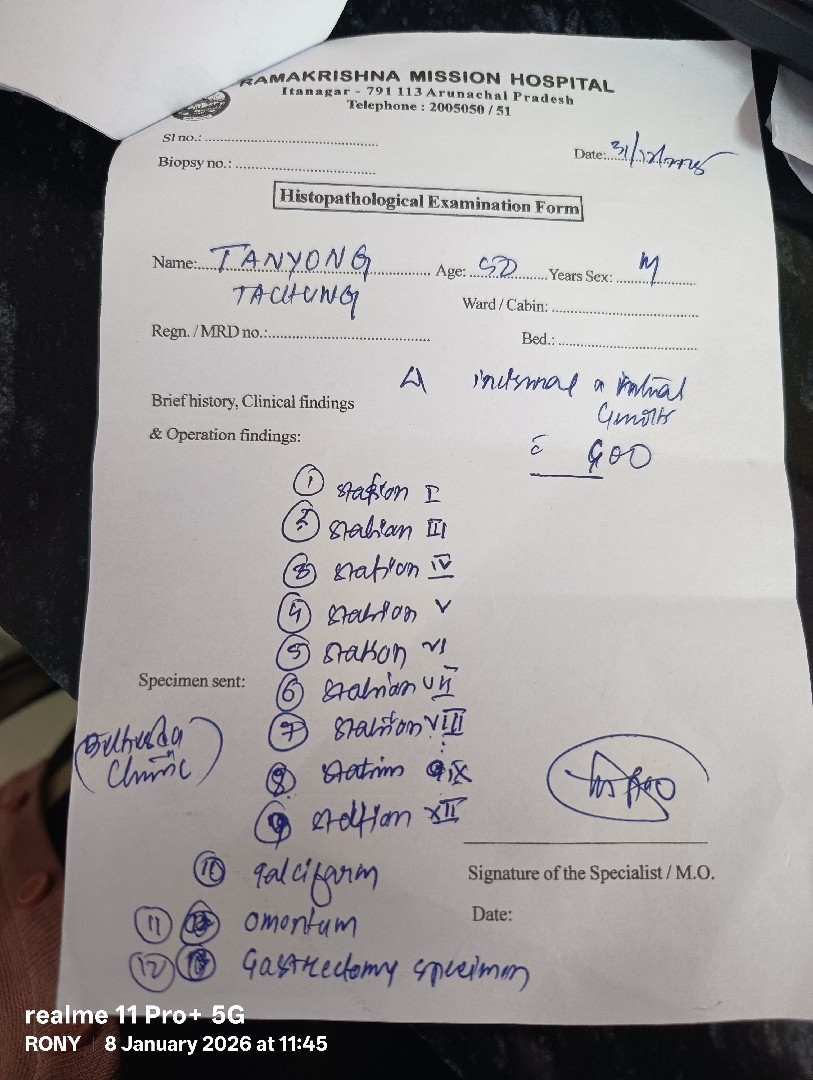 RAMAKRISHNA MISSION HOSPITAL
Itanagar - 791 113 Arunachal Pradesh
Telephone : 2005050 / 51
Sl no.:
Date: 31/12/2025
Biopsy no.:
Histopathological Examination Form
Name: TANYONG Age: 50 Years Sex: M
TACHUNG
Ward / Cabin:
Regn. / MRD no.:
Bed.:
Brief history, Clinical findings
& Operation findings:
c̄ GOO
① station I
② station III
③ station IV
④ station V
⑤ station VI
Specimen sent:
⑥ station VII
⑦ station VIII
Clinic
⑧ station IX
⑨ station XII
⑩ falciform
Signature of the Specialist / M.O.
⑪ omentum
Date:
⑫ Gastrectomy specimen
realme 11 Pro+ 5G
RONY | 8 January 2026 at 11:45